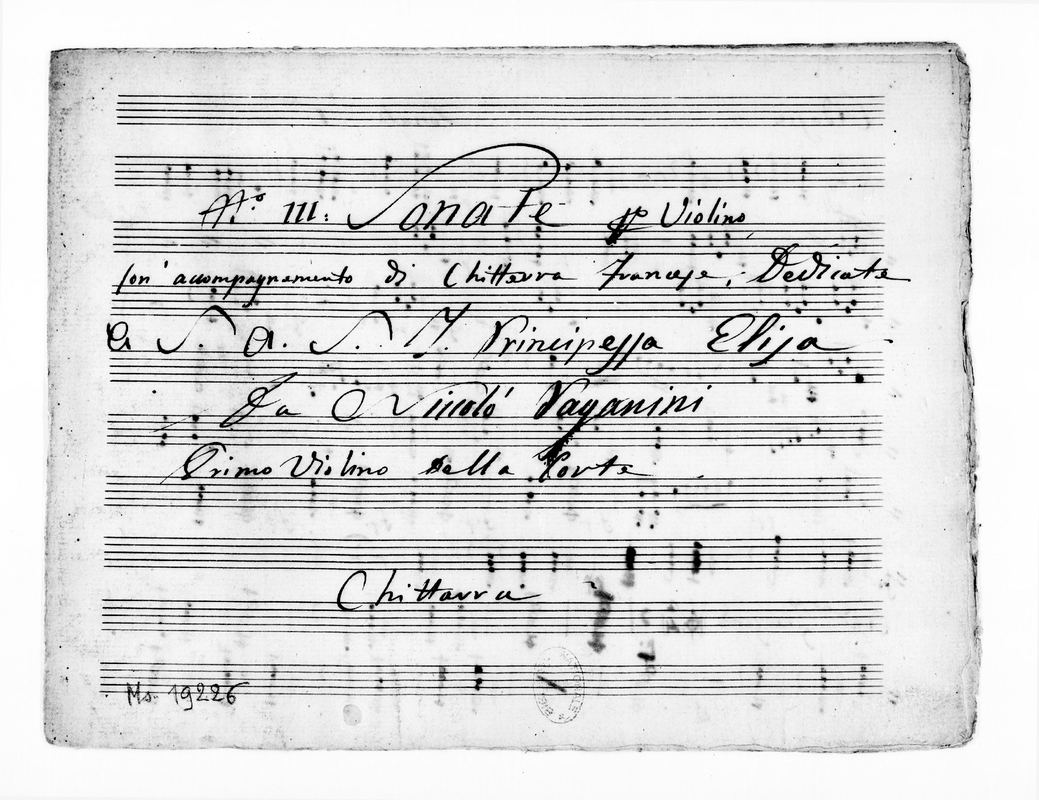 N.º III: Sonate p Violino
Con' accompagnamento di Chittarra Francese, Dedicate
a S. A. S. I. Principessa Elisa
Da Niccoló Paganini
Primo Violino della Corte
Chittarra
Ms. 19226